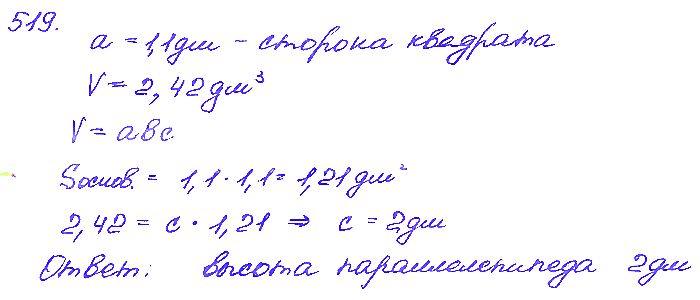 519.
a = 1,1 дм – сторона квадрата
V = 2,42 дм³
V = abc
Sоснов. = 1,1 · 1,1 = 1,21 дм²
2,42 = c · 1,21 ⇒ c = 2 дм
Ответ: высота параллелепипеда 2 дм